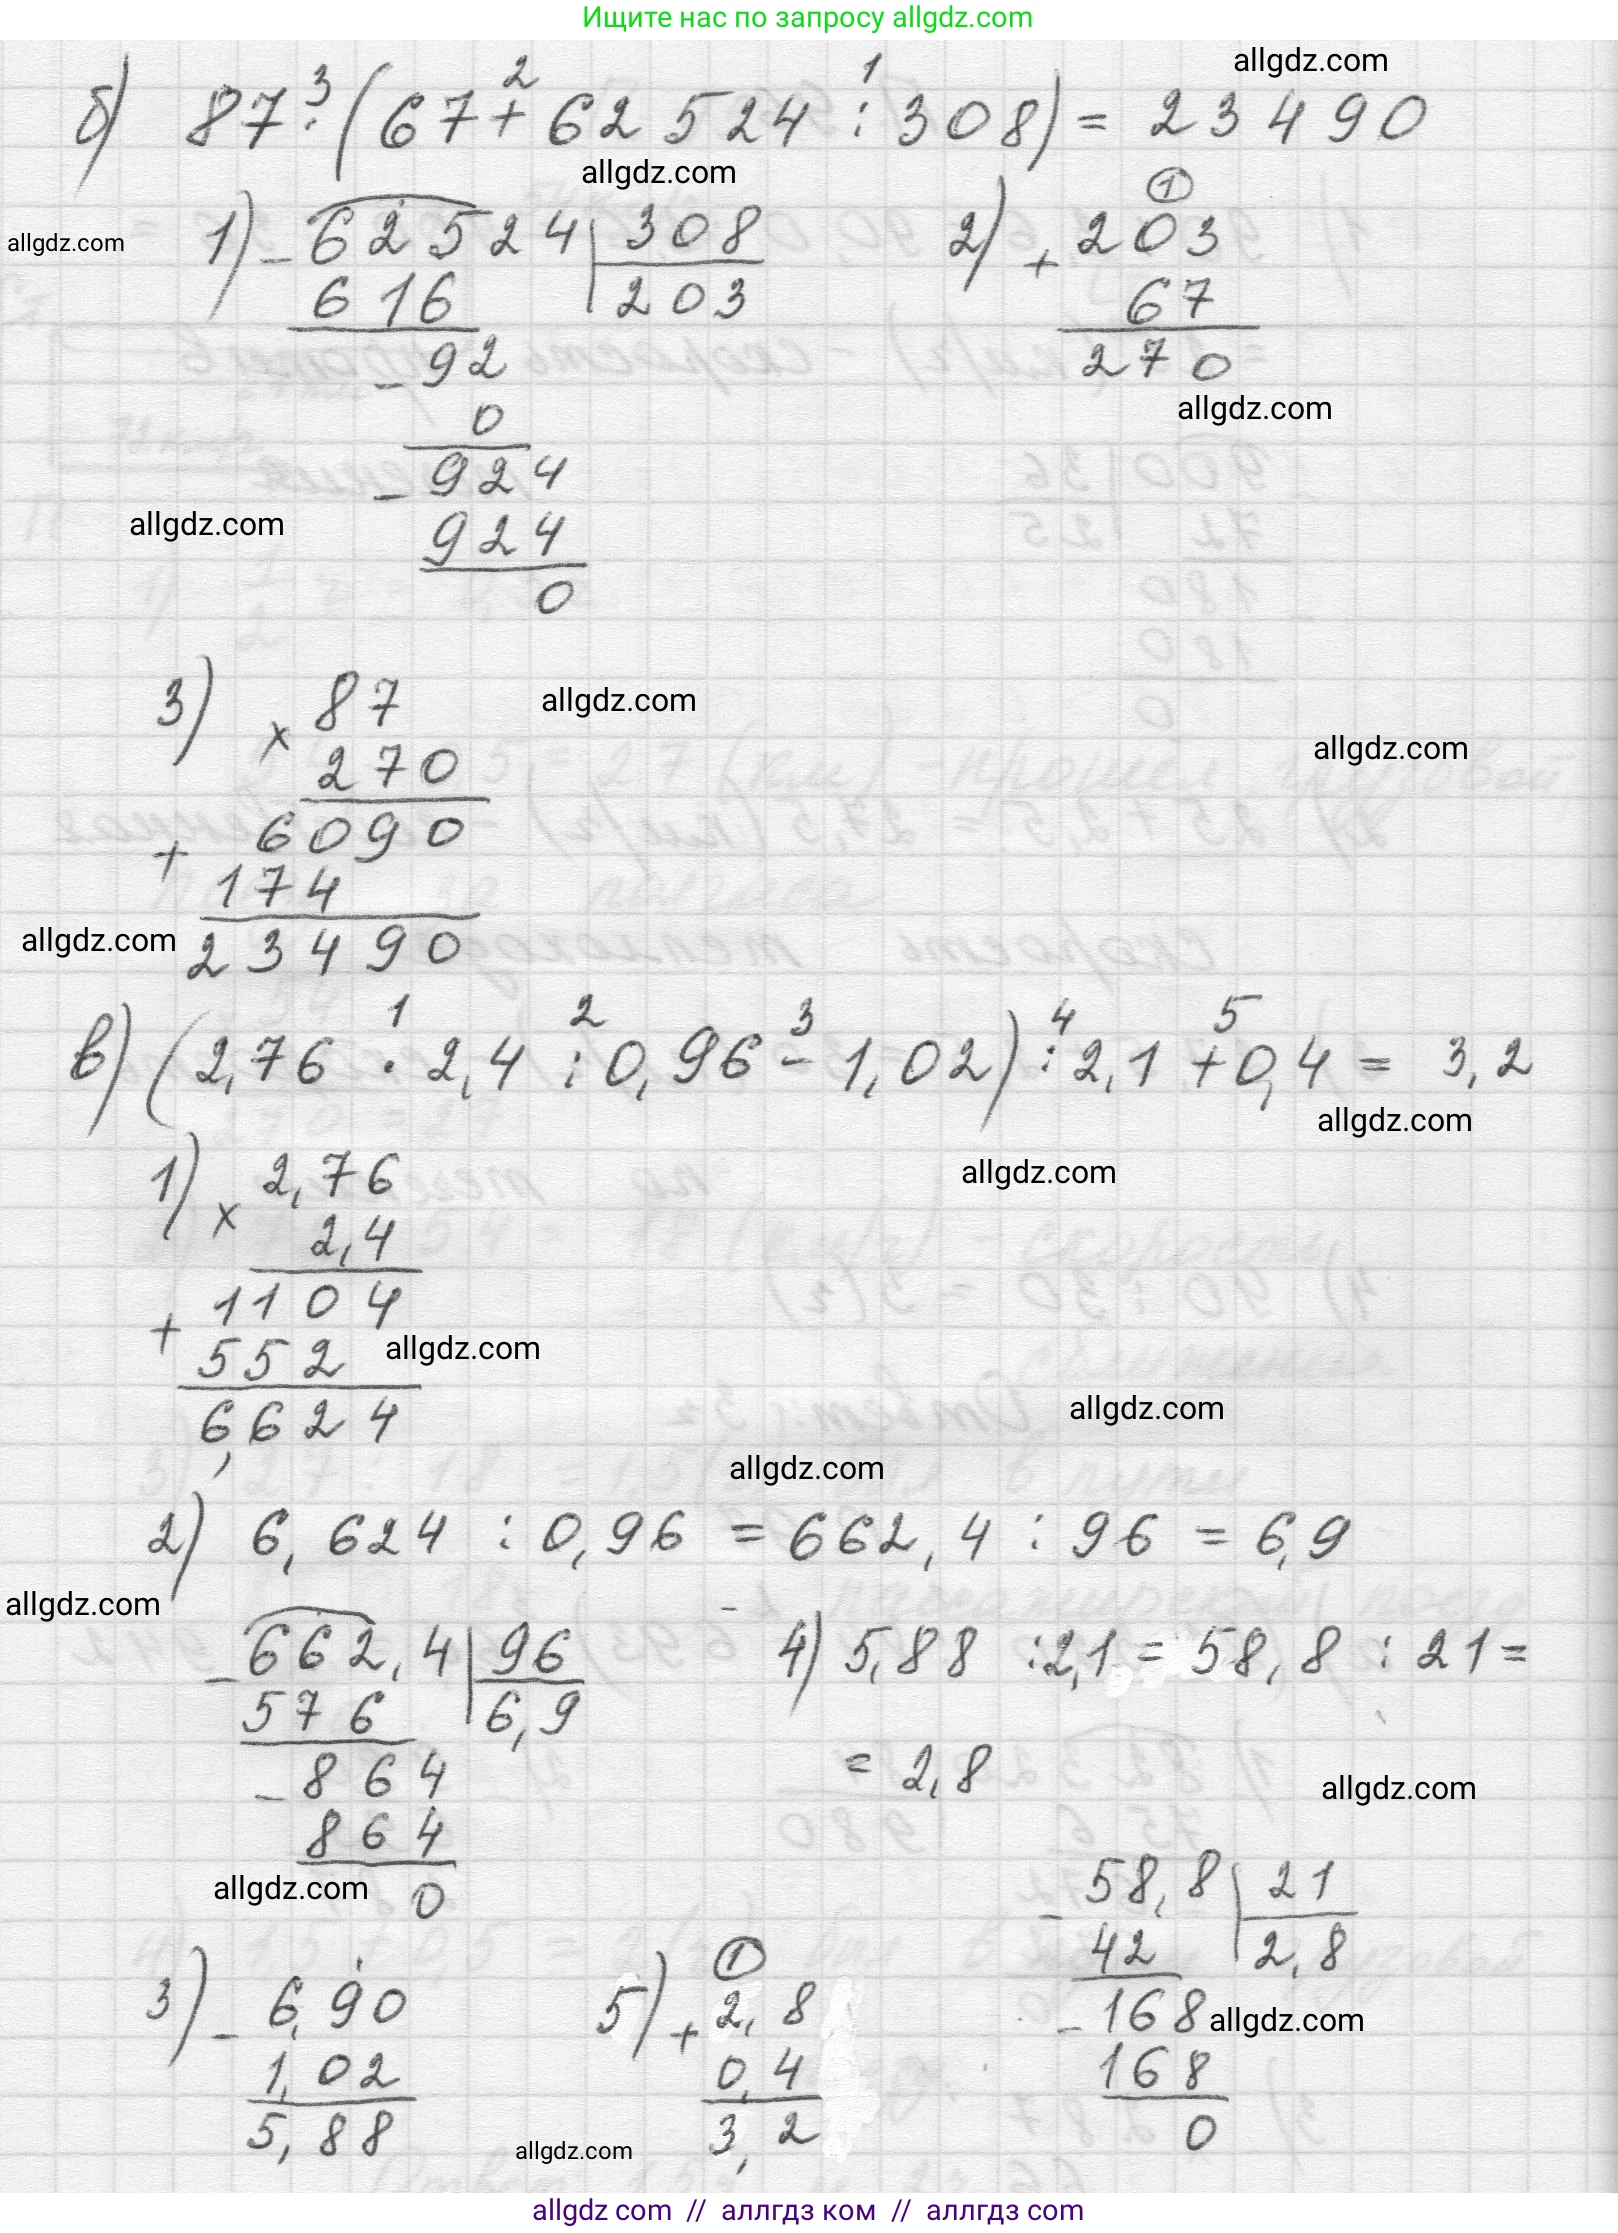 Ищите нас по запросу allgdz.com
allgdz.com
3 2 1
б) 87 · (67 + 62 524 : 308) = 23490
allgdz.com
allgdz.com
1) - 62524 | 308
616 | 203
- 92
0
- 924
924
0
allgdz.com
2) + 203
①
67
270
allgdz.com
3) × 87
270
+ 6090
174
23490
allgdz.com
allgdz.com
allgdz.com
1 2 3 4 5
в) (2,76 · 2,4 : 0,96 - 1,02) : 2,1 + 0,4 = 3,2
allgdz.com
allgdz.com
1) × 2,76
2,4
+ 1104
552
6,624
allgdz.com
allgdz.com
allgdz.com
2) 6,624 : 0,96 = 662,4 : 96 = 6,9
allgdz.com
- 662,4 | 96
576 | 6,9
- 864
864
0
allgdz.com
4) 5,88 : 2,1 = 58,8 : 21 =
= 2,8
allgdz.com
- 58,8 | 21
42 | 2,8
- 168
168
0
allgdz.com
3) - 6,90
1,02
5,88
5) + 2,8
①
0,4
3,2
allgdz.com
allgdz com // аллгдз ком // allgdz.com